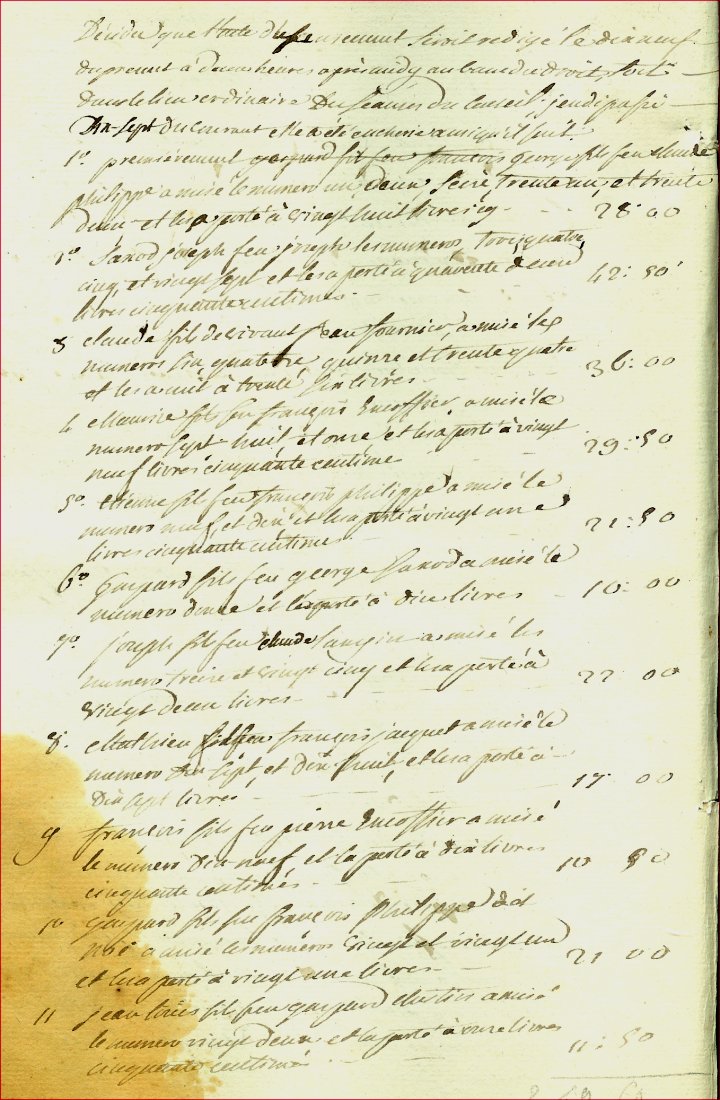 Décidé que
du present à deux heures après midy au banc du droit
dans le lieu ordinaire Du séances du Conseil, jeudi passé
Dix-Sept du Courant elle a été encherie ainsi qu'il suit.
1º. premièrement gaspard fils feu francois george fils feu claude
philippe a misé le numero un, deux, trente un, et trente
deux et les a porté à vingt huit livres 28:00
joseph feu joseph les numeros, trois, quatre,
cinq, et vingt sept et les a porté à quarente deux
livres cinquante centimes. 42:50
3 claude fils de vivant Jean fournier, a misé les
numeros six, quatorze quinze et trente quatre
et les a mis à trente Six livres 36:00
4 Maurice fils feu françois a misé le
numero sept huit, et onze et les a porté à vingt
neuf livres cinquante centime 29:50
5º. etienne fils feu françois philippe a misé le
numero neuf et dix et les a porté à vingt une
livres cinquante centime 21:50
6º Gaspard fils feu george a misé le
numero douze et l'a porté à dix livres 10:00
7º joseph fils feu claude a misé les
numero treize et vingt cinq et les a porté à
vingt deux livres 22 00
8. Mathieu fils feu françois jacquet a misé le
numero Dix Sept et Dix huit, et les a porté à
Dix sept livres 17 00
9 françois fils feu pierre a misé
le numéro Dix neuf et la porté à dix livres
cinquante centimes. 10 50
10 Gaspard fils feu françois Philippe dit
a misé les numéros vingt et vingt un
et les a porté à vingt une livres 21 00
11 jean louis fils feu gaspard a misé
le numero vingt deux et la porté à onze livres
cinquante centimes 11:50